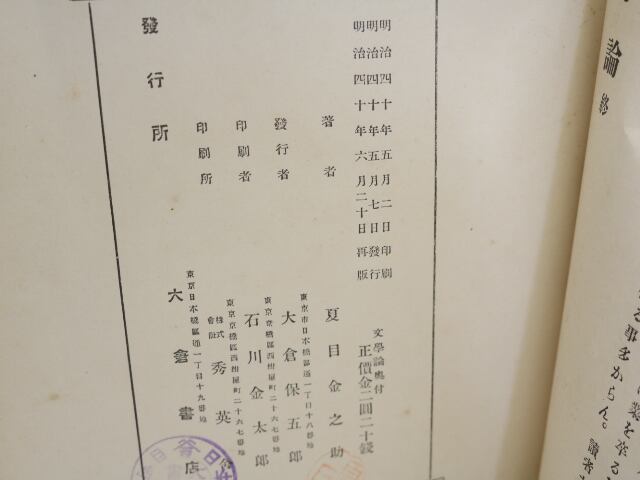 論 終
文學論奥付
正價金二圓二十錢
明治四十年五月二日印刷
明治四十年五月七日發行
明治四十年六月二十日再版
著者 夏目金之助
東京市日本橋區通一丁目十八番地
發行者 大倉保五郎
東京京橋區西紺屋町二十六七番地
印刷者 石川金太郎
東京京橋區西紺屋町二十六七番地
印刷所 株式會社 秀英舍
東京日本橋區通一丁目十九番地
發行所 大倉書店
事をからん。讀者
業を作る